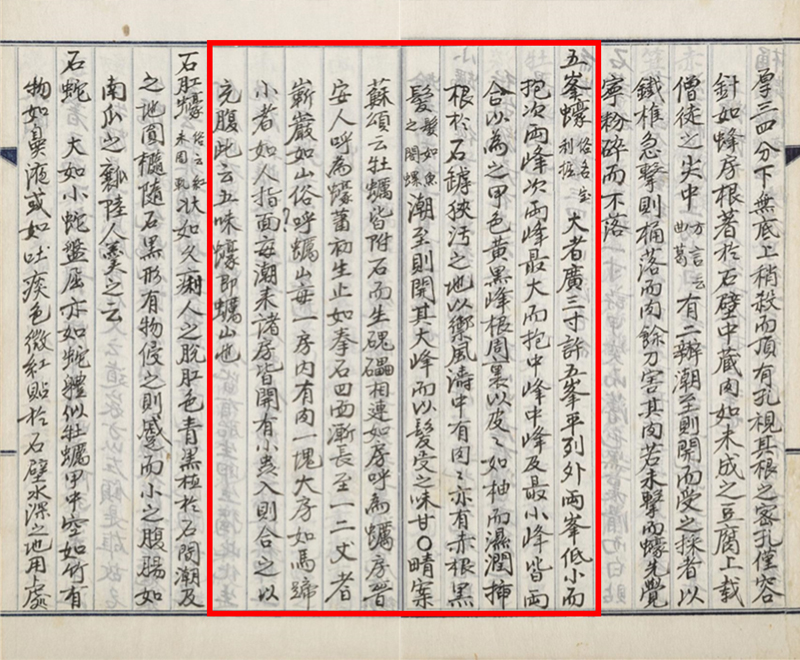 厚三四分下無底上稍殺而頂有孔視其根之密孔僅容
針如蜂房根著於石壁中藏肉如未成之豆腐上載
僧徒之尖巾方言云曲葛有二瓣潮至則開而受之採者以
鐵椎急擊則桶落而肉餘刀害其肉若未擊而蠔先覺
寧粉碎而不落
五峯蠔俗名宝刹掘大者廣三寸許五峯平列外兩峯低小而
抱次兩峰次兩峰最大而抱中峰中峰及最小峰皆兩
合以為之甲色黃黑峰根周裹以皮〻如柚而濕潤揷
根於石罅狹汚之地以禦風濤中有肉〻亦有赤根黑
髮髮如魚之閣鰓潮至則開其大峰而以髮受之味甘〇晴案
蘇頌云牡蠣皆附石而生磈礧相連如房呼為蠣房晉
安人呼為蠔莆初生止如拳石四面漸長至一二丈者
嶄巖如山俗呼蠣山每一房內有肉一塊大房如馬蹄
小者如人指面每潮来諸房皆開有小虫入則合之以
充腹此云五味蠔即蠣山也
石肛蠔俗云紅未周軋状如久痢人之脫肛色青黑植於石間潮及
之地圓橢隨石異形有物侵之則蹙而小之腹腸如
南瓜之瓤陸人羹之云
石蛇 大如小蛇盤屈亦如蛇體似牡蠣甲中空如竹有
物如鼻液或如吐痰色微紅貼於石壁水深之地用處